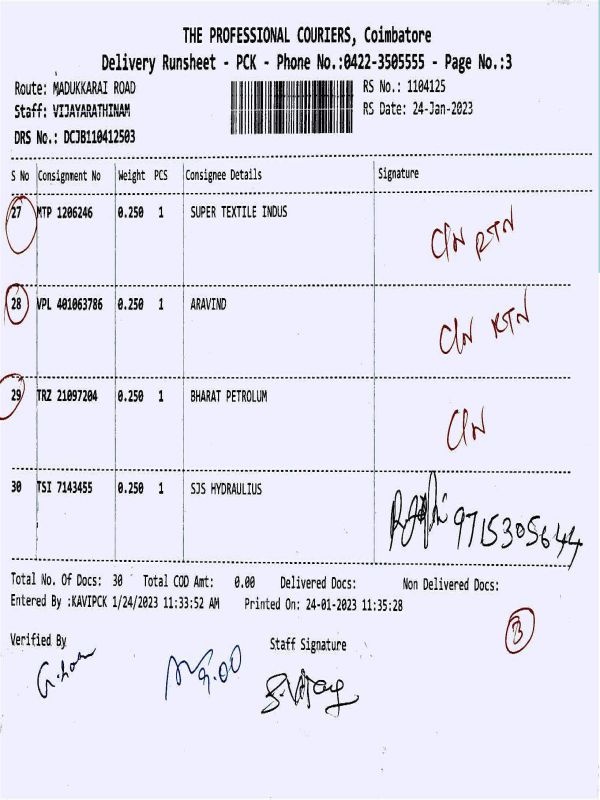 THE PROFESSIONAL COURIERS, Coimbatore
Delivery Runsheet - PCK - Phone No.:0422-3505555 - Page No.:3
Route: MADUKKARAI ROAD
RS No.: 1104125
Staff: VIJAYARATHINAM
RS Date: 24-Jan-2023
DRS No.: DCJB110412503
S No Consignment No Weight PCS Consignee Details Signature
27 MTP 1206246 0.250 1 SUPER TEXTILE INDUS
C/N RTN
28 VPL 401063786 0.250 1 ARAVIND
C/N RTN
29 TRZ 21097204 0.250 1 BHARAT PETROLUM
C/N
30 TSI 7143455 0.250 1 SJS HYDRAULIUS
9715305644
Total No. Of Docs: 30 Total COD Amt: 0.00 Delivered Docs: Non Delivered Docs:
Entered By :KAVIPCK 1/24/2023 11:33:52 AM Printed On: 24-01-2023 11:35:28
3
Verified By Staff Signature